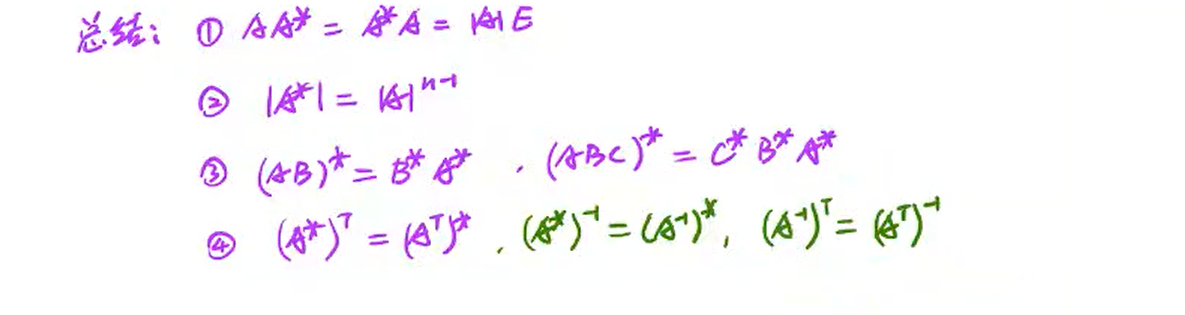 总结: ① AA* = A*A = |A|E
② |A*| = |A|ⁿ⁻¹
③ (AB)* = B*A* . (ABC)* = C*B*A*
④ (A*)ᵀ = (Aᵀ)* . (A*)⁻¹ = (A⁻¹)*, (A⁻¹)ᵀ = (Aᵀ)⁻¹